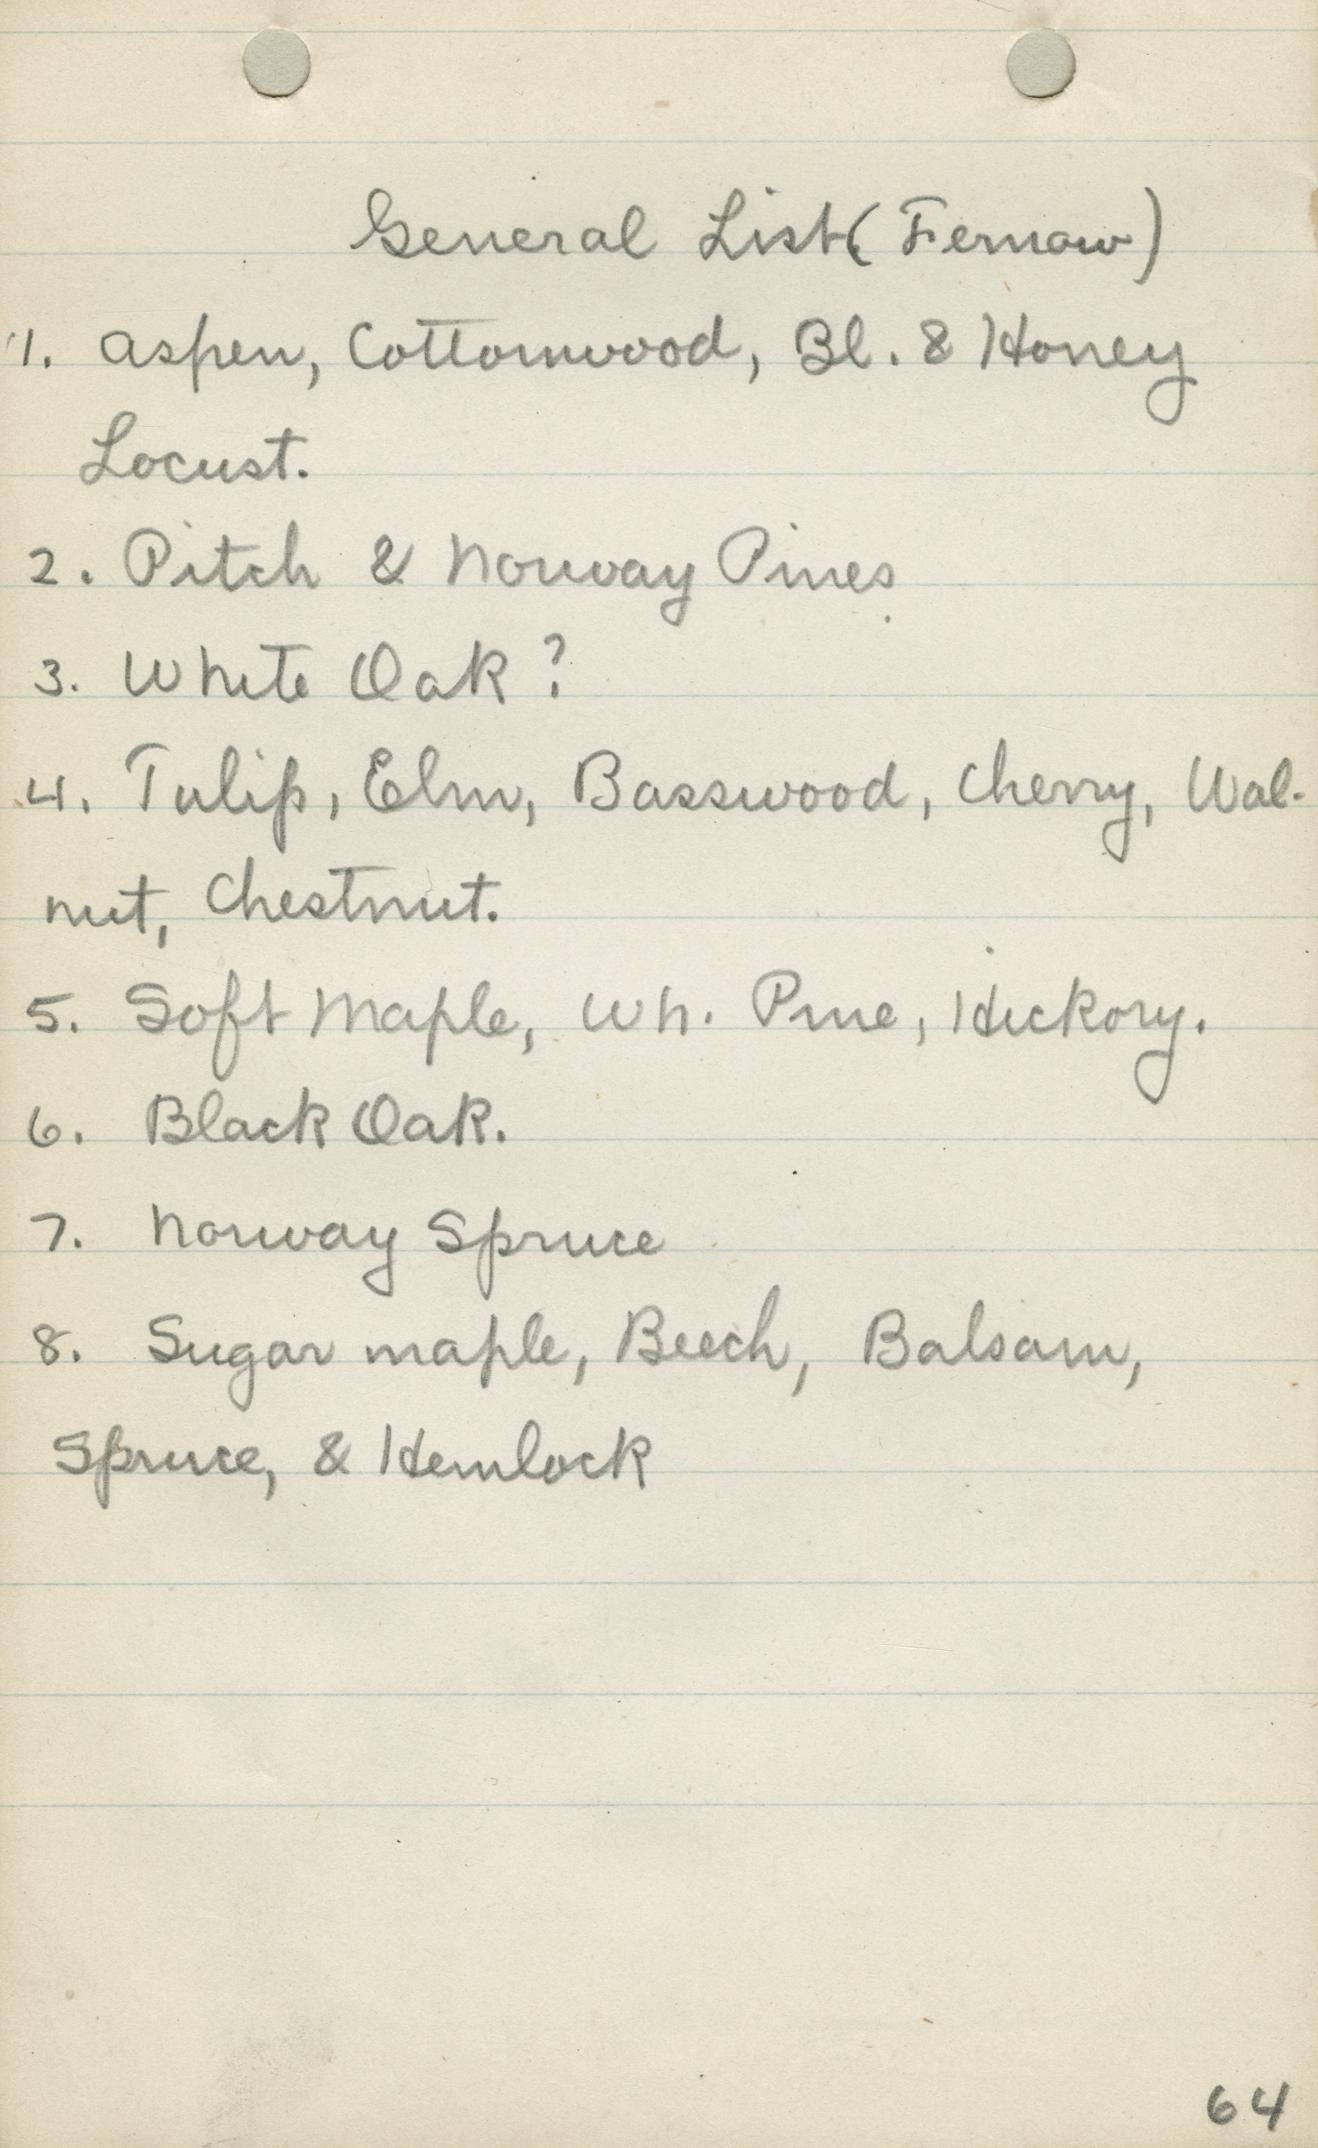 General List (Fernow)
1. Aspen, Cottonwood, Bl. & Honey
Locust.
2. Pitch & Norway Pines
3. White Oak ?
4. Tulip, Elm, Basswood, Cherry, Wal-
nut, Chestnut.
5. Soft Maple, Wh. Pine, Hickory.
6. Black Oak.
7. Norway Spruce
8. Sugar maple, Beech, Balsam,
Spruce, & Hemlock
64